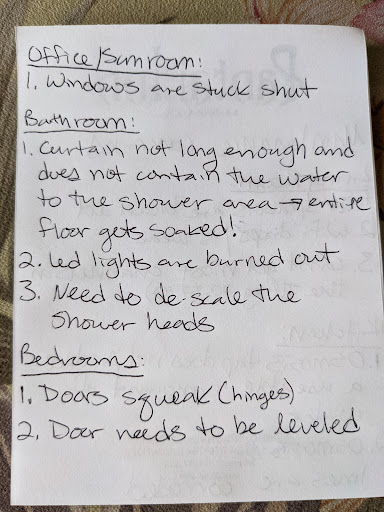 Office/Sunroom:
1. Windows are stuck shut
Bathroom:
1. Curtain not long enough and
does not contain the water
to the shower area → entire
floor gets soaked!
2. Led lights are burned out
3. Need to de-scale the
shower heads
Bedrooms:
1. Doors squeak (hinges)
2. Door needs to be leveled